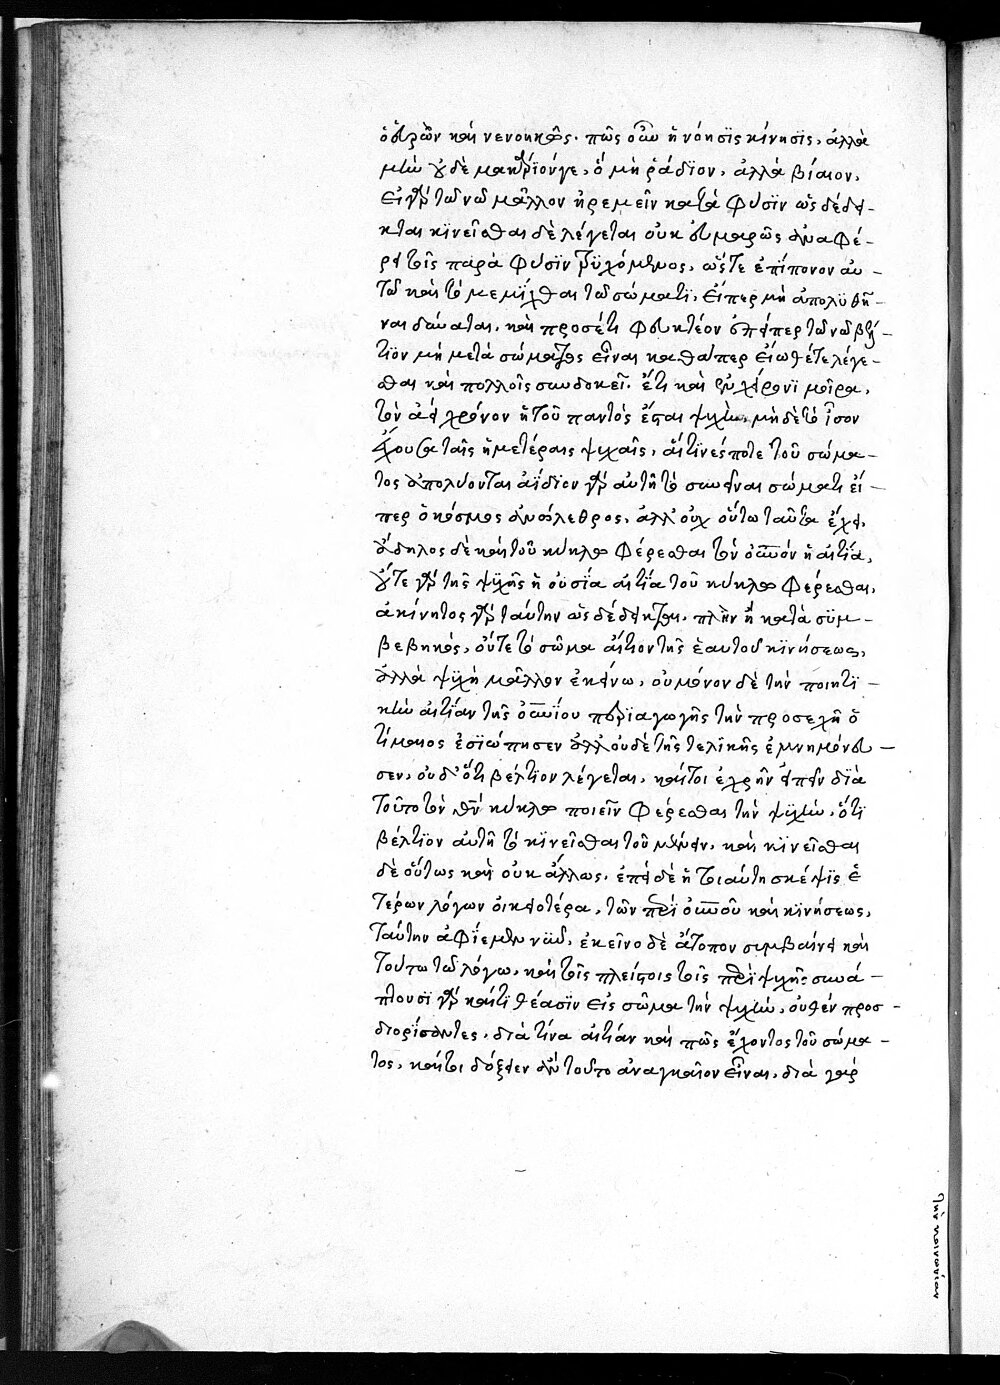 ὁ εὑρὼν καὶ νενοηκώς. πῶς οὖν ἡ νόησϊς κίνησϊς, ἀλλὰ
μὴν οὐδὲ μακάρϊόν γε, ὃ μὴ ῥάδϊον, ἀλλὰ βίαιον,
εἰ γὰρ τῶ νῶ μᾶλλον ἠρεμεῖν κατὰ φύσϊν ὡς δέδει-
κται κϊνεῖσθαι δὲ λέγεται οὐκ εὐμαρῶς ἀναφέ-
ρει τοῖς παρὰ φύσϊν τρυχόμενος, ὥστε ἐπίπονον αὐ-
τῶ καὶ τὸ μεμῖχθαι τῶ σώματϊ, εἴπερ μὴ ἀπολυθῆ-
ναι δύναται, καὶ προσέτι φευκτέον εἴπερ τῶ νῶ βέλ-
τϊον μὴ μετὰ σώματος εἶναι καθάπερ εἴωθέ τε λέγε-
σθαι καὶ πολλοῖς συνδοκεῖ. ἔτι καὶ ἐν χείρονϊ μοίρα,
τὸν ἀεὶ χρόνον ἡ τοῦ παντὸς ἔσται ψυχὴ, μηδὲ τὸ ἴσον
ἔχουσα ταῖς ἡμετέραις ψυχαῖς, αἵτϊνές ποτε τοῦ σώμα-
τος ἀπολύονται ἀΐδϊον γὰρ αὐτῆ τὸ συνεῖναι σώματι εἴ-
περ ὁ κόσμος ἀνώλεθρος, ἀλλ' οὐχ οὕτω ταῦτα ἔχει,
ἄδηλος δὲ καὶ τοῦ κύκλω φέρεσθαι τὸν οὐνὸν ἡ αἰτία,
οὔτε γὰρ τῆς ψυχῆς ἡ οὐσία αἰτία τοῦ κύκλω φέρεσθαι,
ἀκίνητος γὰρ ταύτην ὡς δέδεικται, πλὴν ἢ κατὰ συμ-
βεβηκός, οὔτε τὸ σῶμα αἴτιον τῆς ἑαυτοῦ κϊνήσεως,
ἀλλὰ ψυχὴ μᾶλλον ἐκείνω, οὐ μόνον δὲ τὴν ποιητϊ-
κὴν αἰτίαν τῆς οὐνίου περϊαγωγῆς τὴν προσεχῆ ὁ
τίμαιος ἐσϊώπησεν ἀλλ' οὐδὲ τῆς τελϊκῆς ἐμνημόνευ-
σεν, οὐδ' ὅτι βέλτϊον λέγεται, καίτοι ἐχρῆν εἰπεῖν δϊὰ
τοῦτο τὸν θν κύκλω ποιεῖν φέρεσθαι τὴν ψυχὴν, ὅτϊ
βέλτϊον αὐτῆ τὸ κϊνεῖσθαι τοῦ μένειν, καὶ κϊνεῖσθαι
δὲ οὕτως καὶ οὐκ ἄλλως, ἐπεὶ δὲ ἡ τοιαύτη σκέψϊς ἑ
τέρων λόγων οἰκειοτέρα, τῶν περὶ οὐνοῦ καὶ κϊνήσεως,
ταύτην ἀφΐεμεν νῦν, ἐκεῖνο δὲ ἄτοπον συμβαίνει καὶ
τούτω τῶ λόγω, καὶ τοῖς πλείστοις τοῖς περὶ ψυχῆς· συνά-
πτουσϊ γὰρ καὶ τϊθέασϊν εἰς σῶμα τὴν ψυχὴν, οὐθὲν προσ-
διορίσαντες, διὰ τίνα αἰτίαν καὶ πῶς ἔχοντος τοῦ σώμα-
τος, καίτοι δόξειεν ἂν τοῦτο ἀναγκαῖον εἶναι, διὰ γὰρ
τὴν κοινωνίαν